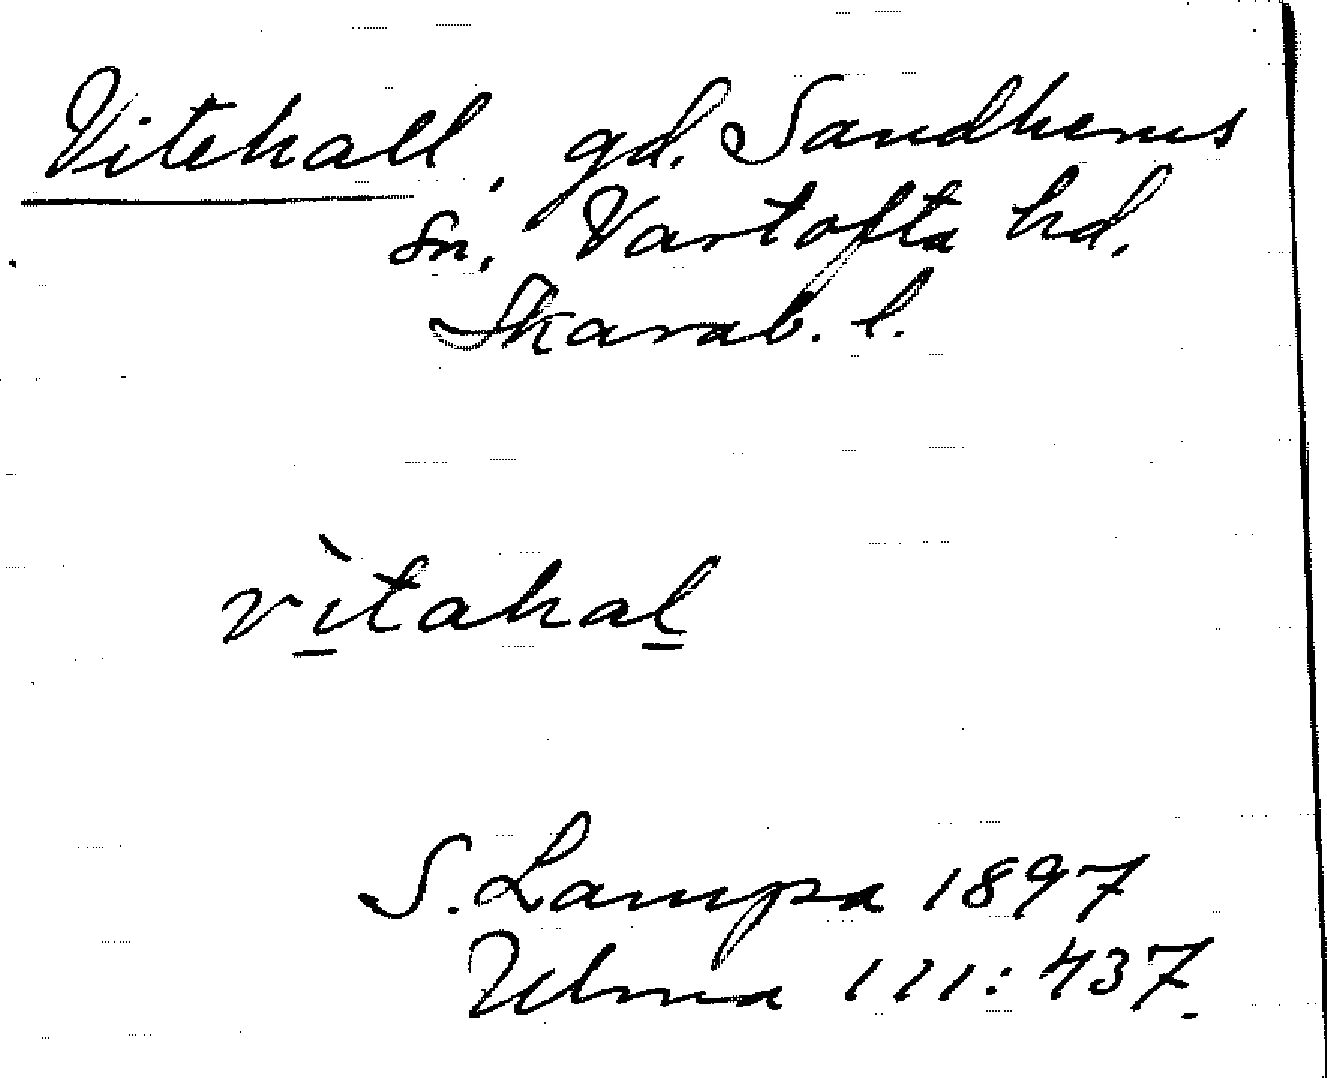 Vitehall, gd. Sandhems
sn. Vartofta hd.
Skarab. l.
vìtahal
S. Lampa 1897
Ulma 111:437.